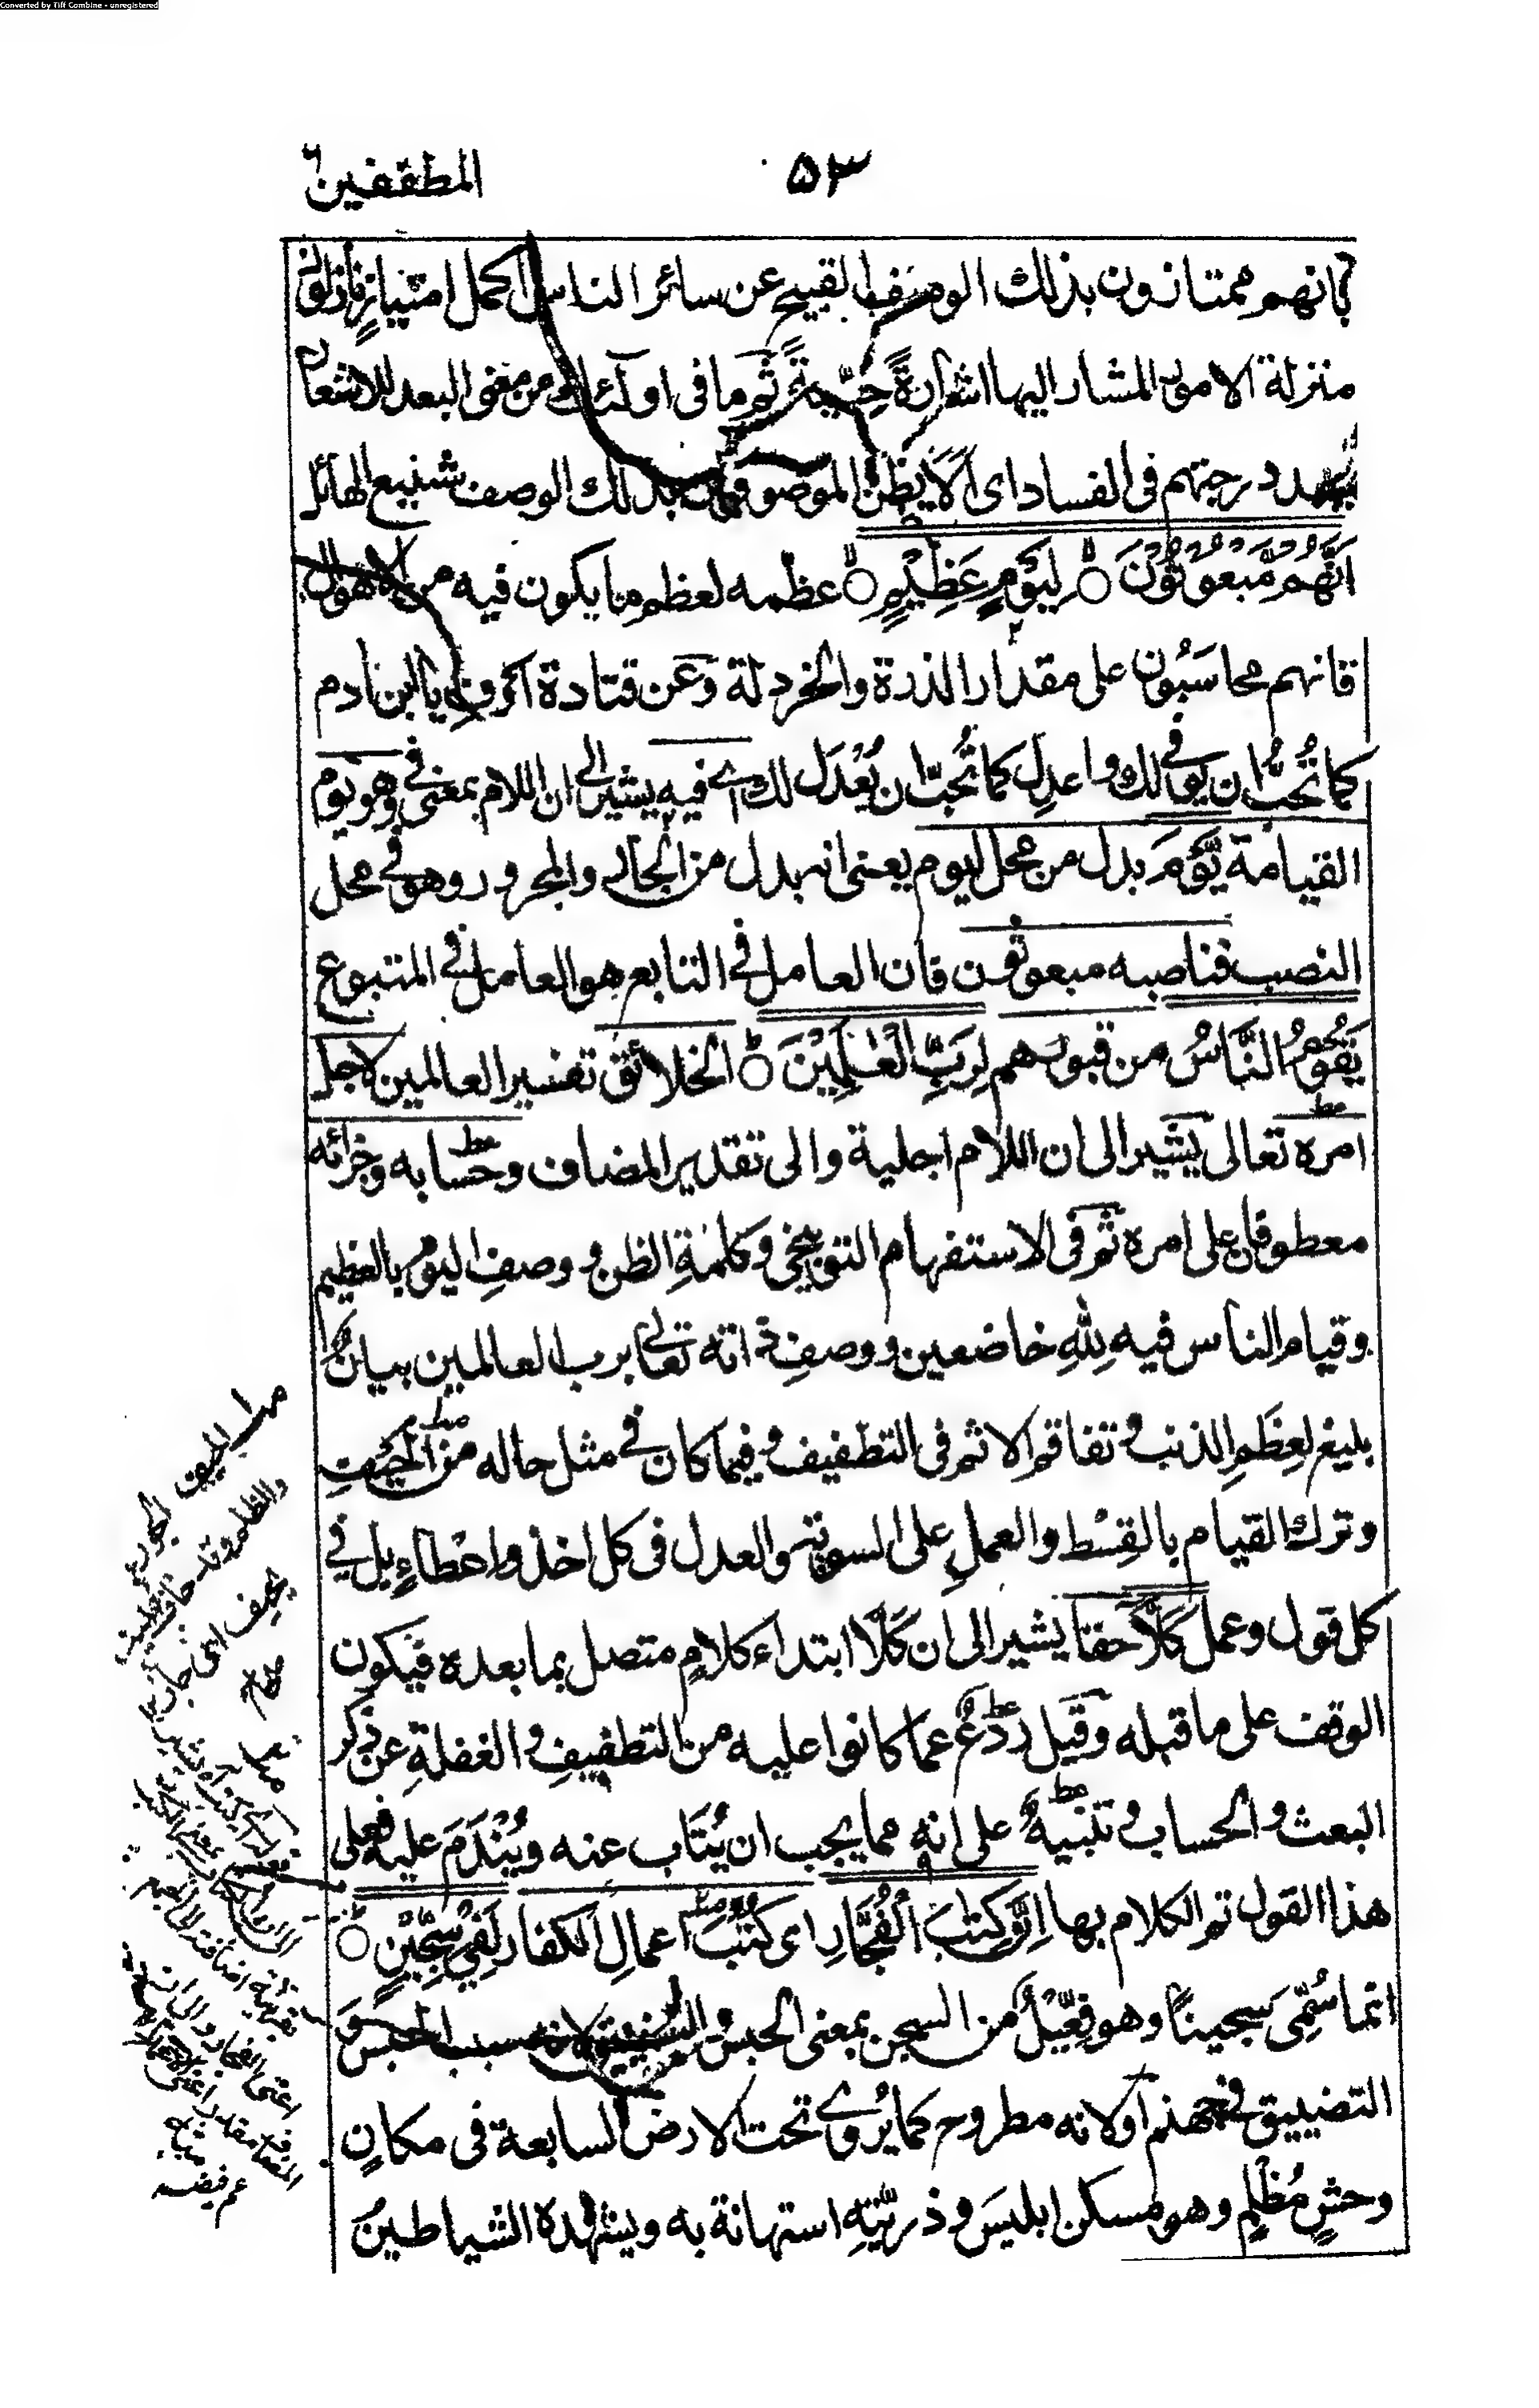 Converted by Tiff Combine - unregistered
۵۳
المطففين
بانهم ممتازون بذلك الوصف القبيح عن سائر الناس اكمل امتياز نازلون
منزلة الامور المشار اليها اشارةً حِسّيةً ثم ما فى اولٰئك من معنى البعد للاشعار
ببعد درجتهم فى الفساد اى اَلَا يَظُنُّ الموصوفون بذلك الوصف شنيع الهائل
اَنَّهُمْ مَّبْعُوْثُوْنَ لِيَوْمٍ عَظِيْمٍ عظّمه لعظم ما يكون فيه من الاهوال
فانهم محاسَبُون على مقدار الذرة والخردلة وعن قتادة اَوفِ يا ابن ادم
كما تُحبُّ ان يوفى لك واعدِل كما تُحبّ ان يُعْدَل لك اے فيه يشير الى ان اللام بمعنى فى وهو يوم
القيامة يَّوْمَ بدل من محل ليوم يعنى انه بدل من الجار والمجرور وهو فى محل
النصب فناصبه مبعوثون فان العامل فى التابع هو العامل فى المتبوع
يَقُوْمُ النَّاسُ من قبورهم لِرَبِّ الْعٰلَمِيْنَ الخلائق تفسير العالمين لاجل
امره تعالى يشير الى ان اللام اجلية والى تقدير المضاف وحسابه وجزائه
معطوفان على امره ثم فى الاستفهام التوبيخى وكلمةِ الظن ووصفِ اليوم بالعظيم
وقيام الناس فيه لِلّٰهِ خاضعين ووصفِ ذاته تعالى برب العالمين بيانٌ
بليغ لعِظَمِ الذنب وتفاقم الاثم فى التطفيف وفيما كان فى مثل حاله من الحيف
وترك القيام بالقِسْط والعملِ على السوية والعدل فى كل اخذ واعْطاءٍ بل فى
كل قول وعمل كَلَّا حقا يشير الى ان كَلَّا ابتداء كلامٍ متصل بما بعده فيكون
الوقف على ما قبله وقيل رَدْعٌ عما كانوا عليه من التطفيفِ والغفلةِ عن ذكر
البعث والحساب وتنبيهٌ على انه مما يجب ان يُتَاب عنه ويُنْدَمَ عليه فعلى
هذا القول تم الكلام بها اِنَّ كِتٰبَ الْفُجَّارِ اى كُتُبَ اعمالِ الكفار لَفِىْ سِجِّيْنٍ
انما سُمِّى سجينًا وهو فِعِّيْلٌ من السجن بمعنى الحبس والتضييق لانه سبب الحبس و
التضييق فى جهنم اَو لانه مطروح كما يُروٰے تحت الارض السابعة فى مكانٍ
وحشٍ مُظْلِمٍ وهو مسكن ابليسَ وذريّتِه استهانة به ويشهده الشياطينُ